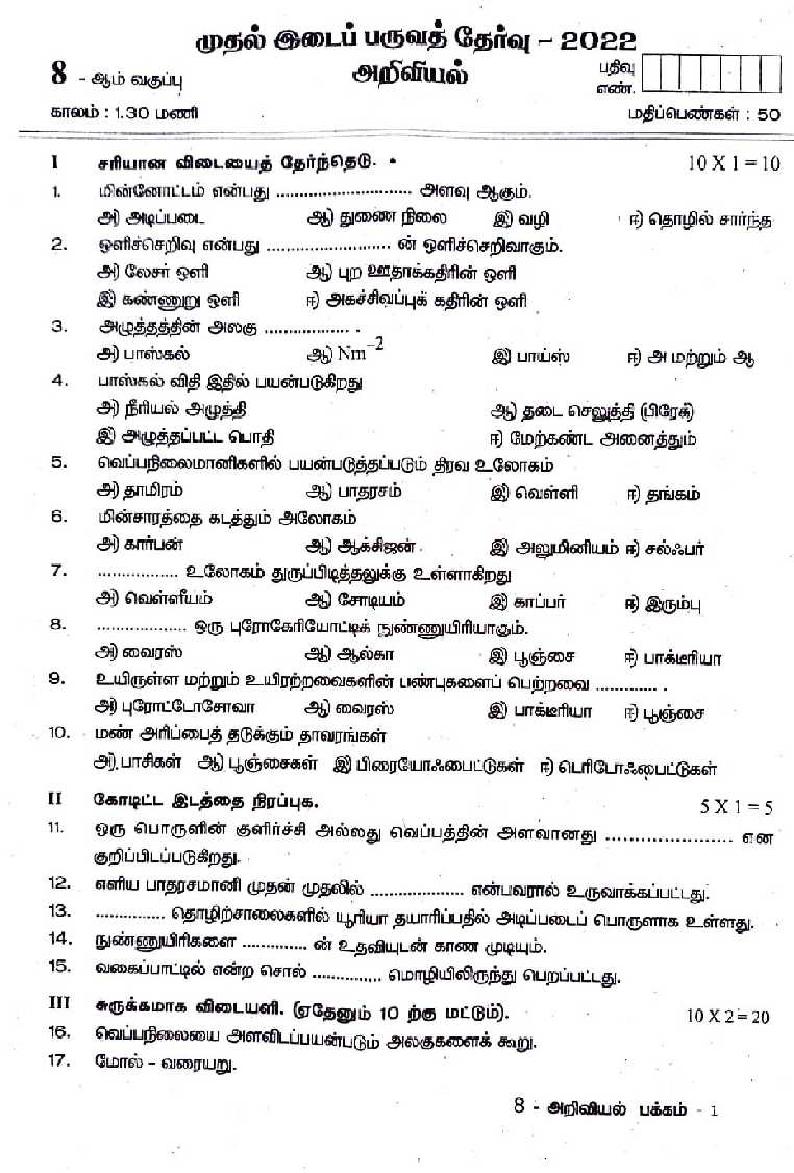 முதல் இடைப் பருவத் தேர்வு – 2022
8 - ஆம் வகுப்பு அறிவியல் பதிவு எண்.
காலம் : 1.30 மணி மதிப்பெண்கள் : 50
I சரியான விடையைத் தேர்ந்தெடு. 10 X 1 = 10
1. மின்னோட்டம் என்பது .............................. அளவு ஆகும்.
அ) அடிப்படை ஆ) துணை நிலை இ) வழி ஈ) தொழில் சார்ந்த
2. ஒளிச்செறிவு என்பது ........................... ன் ஒளிச்செறிவாகும்.
அ) லேசர் ஒளி ஆ) புற ஊதாக்கதிரின் ஒளி
இ) கண்ணுறு ஒளி ஈ) அகச்சிவப்புக் கதிரின் ஒளி
3. அழுத்தத்தின் அலகு ................... .
அ) பாஸ்கல் ஆ) Nm⁻² இ) பாய்ஸ் ஈ) அ மற்றும் ஆ
4. பாஸ்கல் விதி இதில் பயன்படுகிறது
அ) நீரியல் அழுத்தி ஆ) தடை செலுத்தி (பிரேக்)
இ) அழுத்தப்பட்ட பொதி ஈ) மேற்கண்ட அனைத்தும்
5. வெப்பநிலைமானிகளில் பயன்படுத்தப்படும் திரவ உலோகம்
அ) தாமிரம் ஆ) பாதரசம் இ) வெள்ளி ஈ) தங்கம்
6. மின்சாரத்தை கடத்தும் அலோகம்
அ) கார்பன் ஆ) ஆக்சிஜன் இ) அலுமினியம் ஈ) சல்ஃபர்
7. .................. உலோகம் துருப்பிடித்தலுக்கு உள்ளாகிறது
அ) வெள்ளீயம் ஆ) சோடியம் இ) காப்பர் ஈ) இரும்பு
8. .................... ஒரு புரோகேரியோட்டிக் நுண்ணுயிரியாகும்.
அ) வைரஸ் ஆ) ஆல்கா இ) பூஞ்சை ஈ) பாக்டீரியா
9. உயிருள்ள மற்றும் உயிரற்றவைகளின் பண்புகளைப் பெற்றவை ............. .
அ) புரோட்டோசோவா ஆ) வைரஸ் இ) பாக்டீரியா ஈ) பூஞ்சை
10. மண் அரிப்பைத் தடுக்கும் தாவரங்கள்
அ) பாசிகள் ஆ) பூஞ்சைகள் இ) பிரையோஃபைட்டுகள் ஈ) டெரிடோஃபைட்டுகள்
II கோடிட்ட இடத்தை நிரப்புக. 5 X 1 = 5
11. ஒரு பொருளின் குளிர்ச்சி அல்லது வெப்பத்தின் அளவானது ........................... என
குறிப்பிடப்படுகிறது.
12. எளிய பாதரசமானி முதன் முதலில் .................... என்பவரால் உருவாக்கப்பட்டது.
13. ............... தொழிற்சாலைகளில் யூரியா தயாரிப்பதில் அடிப்படைப் பொருளாக உள்ளது.
14. நுண்ணுயிரிகளை .............. ன் உதவியுடன் காண முடியும்.
15. வகைப்பாட்டில் என்ற சொல் ............... மொழியிலிருந்து பெறப்பட்டது.
III சுருக்கமாக விடையளி. (ஏதேனும் 10 ற்கு மட்டும்). 10 X 2 = 20
16. வெப்பநிலையை அளவிடப்பயன்படும் அலகுகளைக் கூறு.
17. மோல் – வரையறு.
8 - அறிவியல் பக்கம் - 1